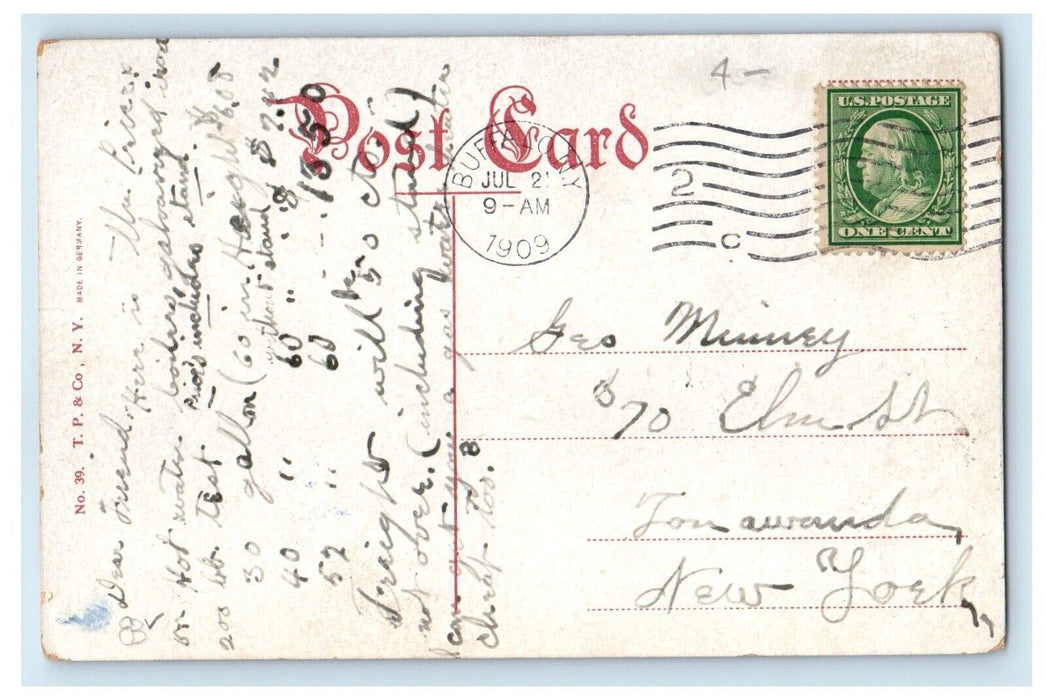 4-
Post Card
BUFFALO, N.Y.
JUL 21
9-AM
1909
2
C
U.S. POSTAGE
ONE CENT
No. 39. T. P. & Co., N. Y. MADE IN GERMANY.
Geo Minney
70 Elm St
Tonawanda,
New York
Dear Friend, Here is the Prices
on Hot water boilers, galvanized iron
Price includes stand.
200 lb. test
30 gallon (60 in. Height $6.08
without stand
40 " 60 " "
52 " 60
Freight will be 50 cts.
not over. (including stand)
I can get you a gas water heater
cheap too.